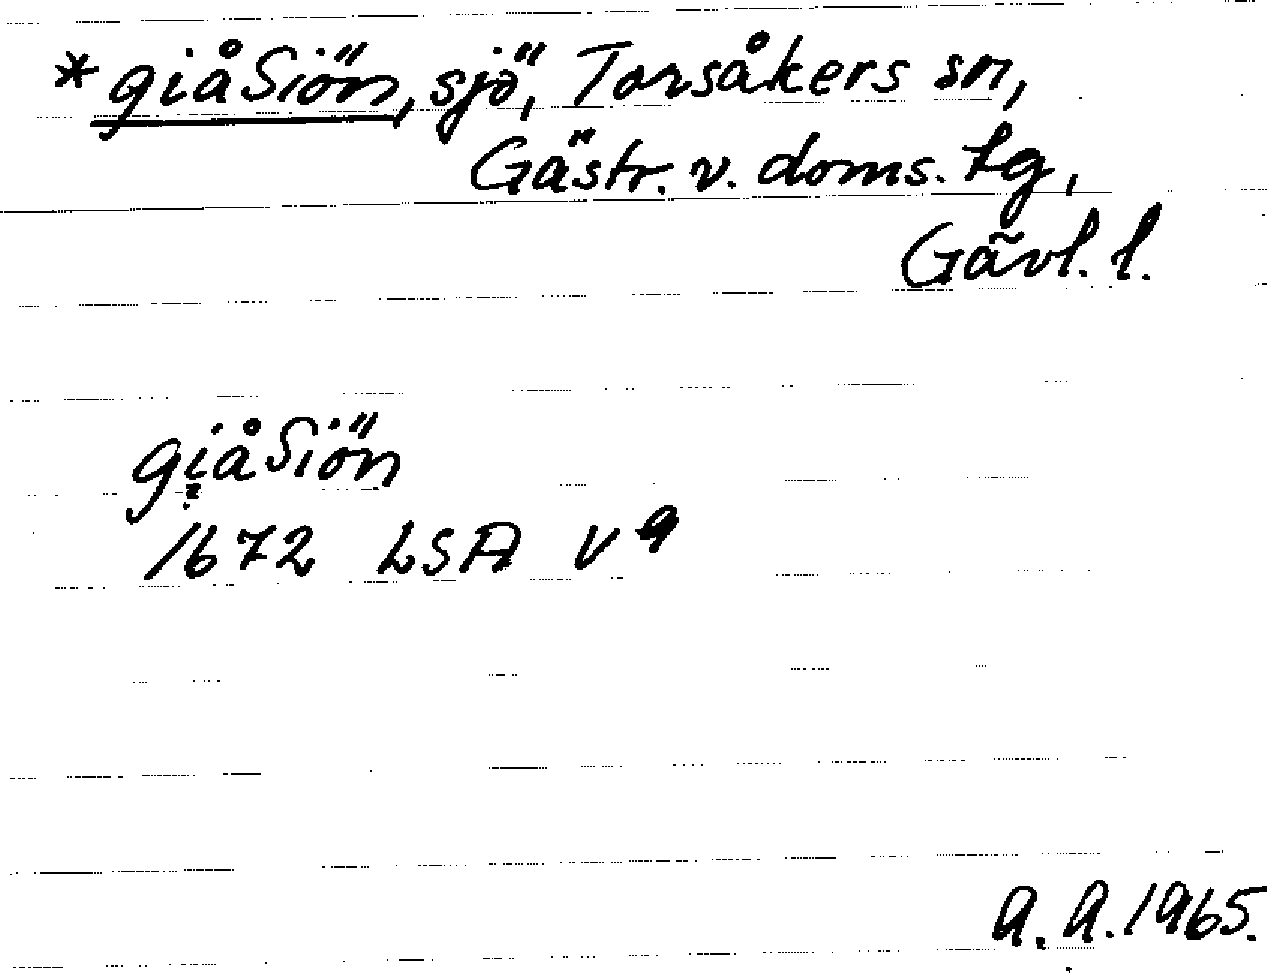 *giåSiön, sjö, Torsåkers sn,
Gästr. v. doms. tg,
Gävl. l.
giåSiön
1672 LSA V 9
A. A. 1965.